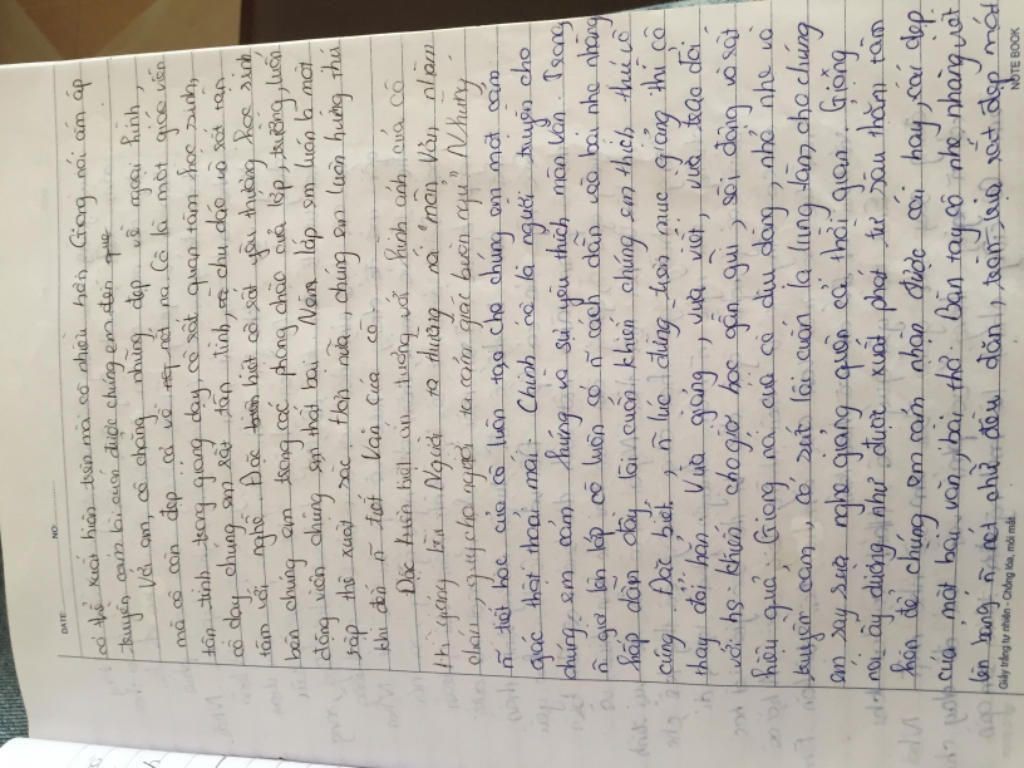 DATE
NO.
có thể xuất hiện trên mà có nhiều bên. Giọng nói ấm áp
truyền cảm lôi cuốn được chúng em đến
Với em, cô chẳng những đẹp về ngoại hình,
mà cô còn đẹp cả về nết na. Cô là một giáo viên
tận tình trong giảng dạy, cô rất quan tâm học sinh,
cô dạy chúng em rất tận tình, chu đáo và rất tận
tâm với nghề. Đặc biệt cô rất yêu thương học sinh
bọn chúng em trong các phong trào của lớp, trường, luôn
động viên chúng em thật bại. Năm lớp em luôn là một
tập thể xuất sắc. Hơn nữa, chúng em luôn hứng thú
khi đến ñ tiết Văn của cô.
Đặc biệt ấn tượng với hình ảnh của cô
khi giảng bài. Người ta thường nói "môn Văn nhàm
chán, gây cho người ta cảm giác buồn ngủ". Nhưng
ñ tiết học của cô luôn tạo cho chúng em một cảm
giác thật thoải mái. Chính cô là người truyền cho
chúng em cảm hứng và sự yêu thích môn Văn. Trong
ñ giờ lên lớp cô luôn có ñ cách dẫn vào bài nhẹ nhàng
hấp dẫn đầy lôi cuốn khiến chúng em thích thú vô
cùng. Đặc biệt, ñ lúc đứng trên mục giảng thì cô
thay đổi hẳn. Vừa giảng, vừa viết, vừa trao đổi
với hs khiến cho giờ học gần gũi, sôi động và rất
hiệu quả. Giọng nói của cô dịu dàng, nhỏ nhẹ và
truyền cảm, có sức lôi cuốn lạ lùng làm cho chúng
em say sưa nghe giảng quên cả thời gian. Giọng
nói ấy dường như được xuất phát từ sâu thẳm tâm
hồn để chúng em cảm nhận được cái hay, cái đẹp
của một bài văn, bài thơ. Bàn tay cô nhẹ nhàng viết
lên bảng ñ nét chữ đều đặn, rất đẹp mắt
Giấy trắng tự nhiên - Chống lóa, mỏi mắt
NOTE BOOK